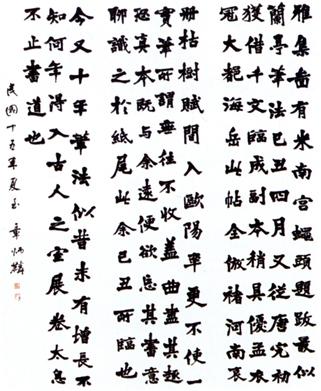 雅集啚有米南宮蠅頭題跋最似
蘭亭筆法己丑四月又從唐完初
獲借千文臨成副本稍具優孟衣
冠大都海岳此帖全倣褚河南哀
冊枯樹賦間入歐陽率更不使一
實筆所謂無往不收蓋曲盡其趣
恐真本既與余遠便欲忘其書意
聊識之於紙尾此余己丑所臨也
今又十年筆法似昔未有增長不
知何年得入古人之室展卷太息
不止書道也
民國十五年夏至 章炳麟